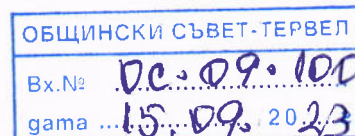 ОБЩИНСКИ СЪВЕТ-ТЕРВЕЛ
Вх.№ ОС.09.100
дата 15.09. 2023